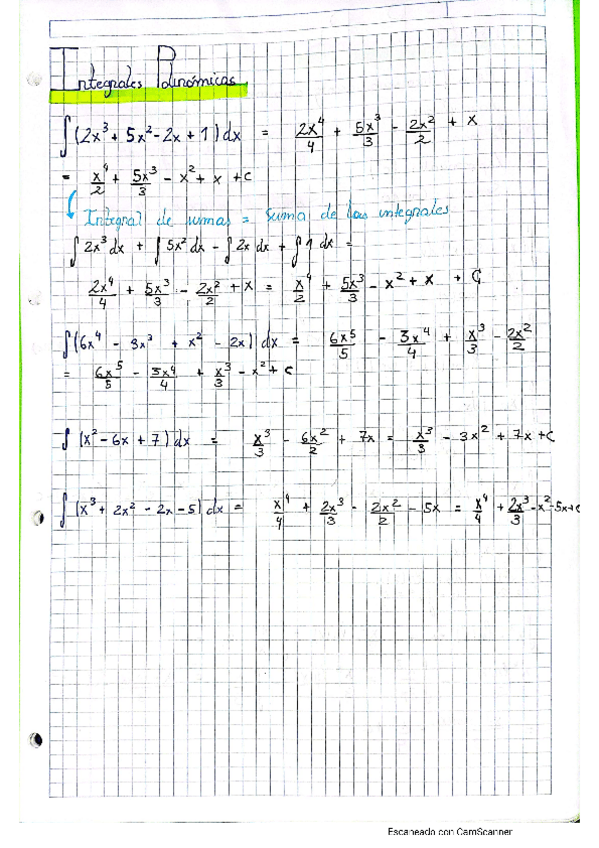 Integrales Polinómicas
∫(2x³ + 5x² - 2x + 1) dx = 2x⁴/4 + 5x³/3 - 2x²/2 + x
= x⁴/2 + 5x³/3 - x² + x + c
Integral de sumas = suma de las integrales
∫2x³ dx + ∫5x² dx - ∫2x dx + ∫1 dx =
2x⁴/4 + 5x³/3 - 2x²/2 + x = x⁴/2 + 5x³/3 - x² + x + C
∫(6x⁴ - 3x³ + x² - 2x) dx = 6x⁵/5 - 3x⁴/4 + x³/3 - 2x²/2
= 6x⁵/5 - 3x⁴/4 + x³/3 - x² + c
∫(x² - 6x + 7) dx = x³/3 - 6x²/2 + 7x = x³/3 - 3x² + 7x + C
∫(x³ + 2x² - 2x - 5) dx = x⁴/4 + 2x³/3 - 2x²/2 - 5x = x⁴/4 + 2x³/3 - x² - 5x + c
Escaneado con CamScanner